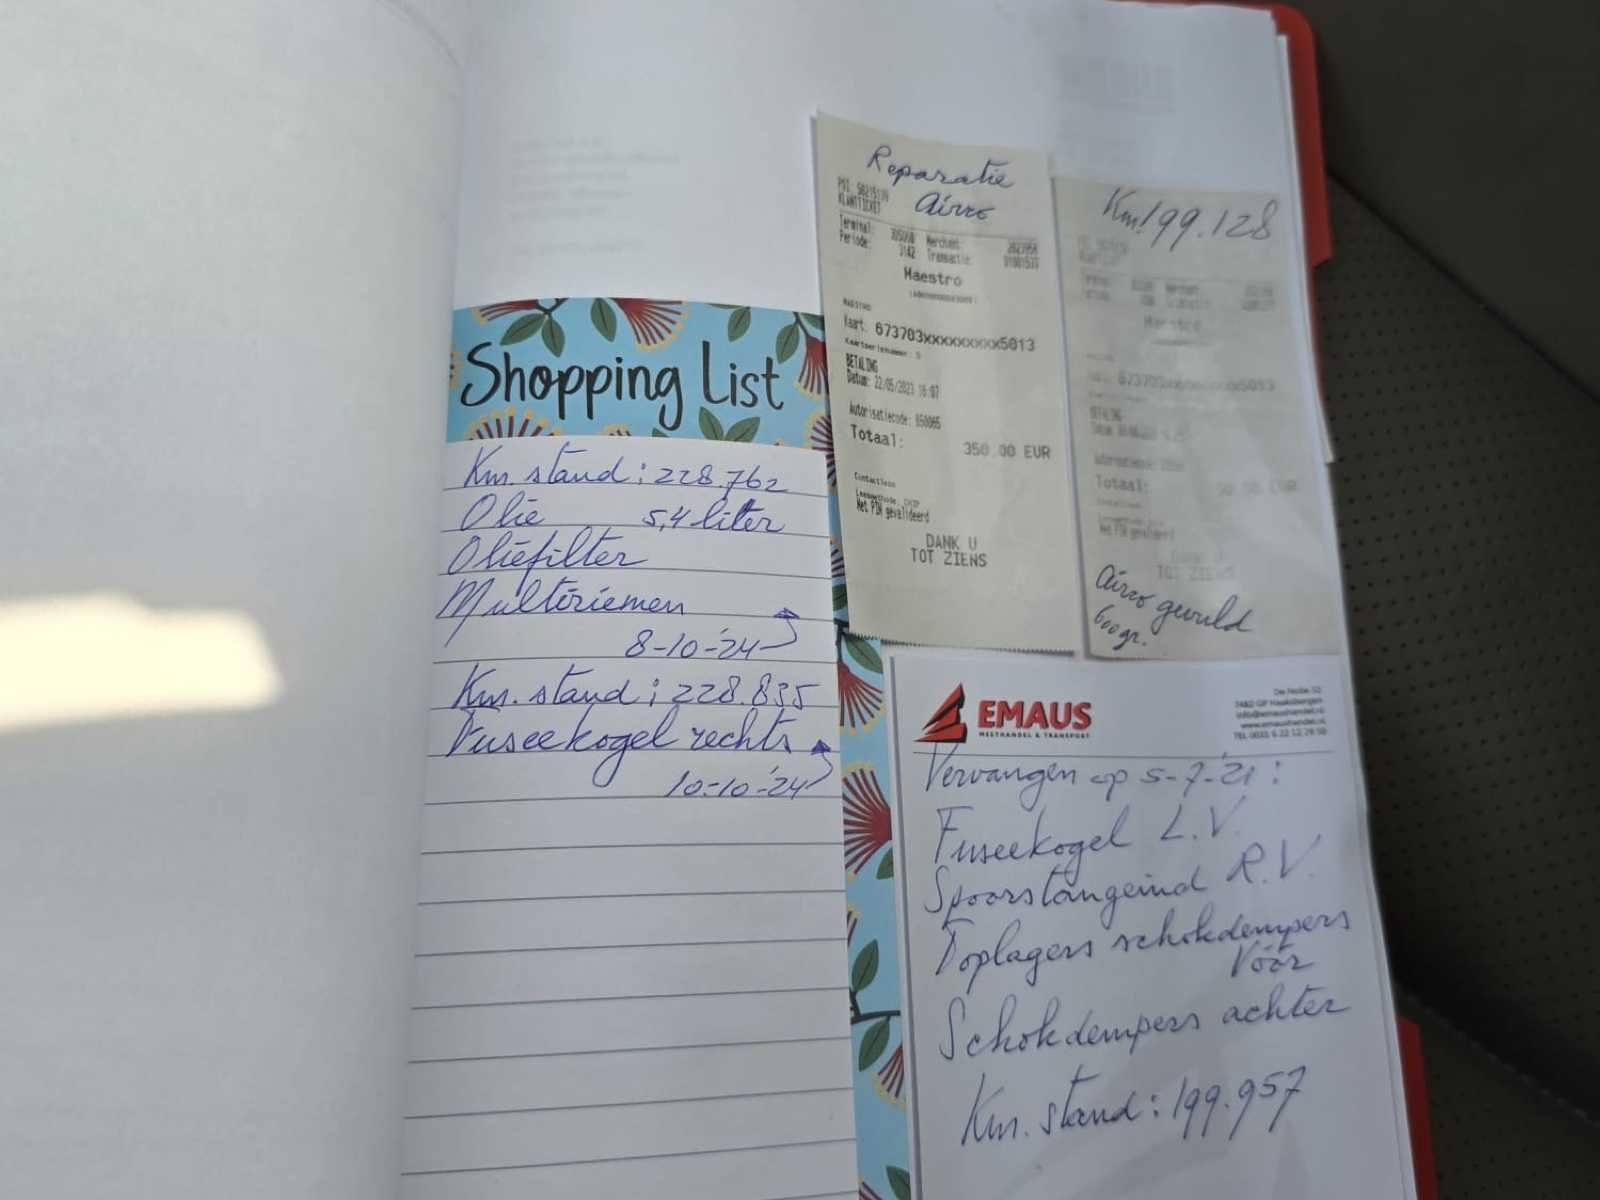 Shopping List
Km. stand: 228.762
Olie 5,4 liter
Oliefilter
Multiriemen
8-10-'24
Km. stand: 228.835
Fuseekogel rechts
10-10-'24
Reparatie
Airco
POI: 50215139
KLANTTICKET
Terminal: Merchant:
Periode: 3142 Transactie: 01001533
Maestro
MAESTRO
Kaart: 673703xxxxxxxxx5013
BETALING
Datum: 22/05/2023 16:07
Autorisatiecode: 650065
Totaal: 350,00 EUR
Contactloos
Leesmethode: CHIP
Met PIN gevalideerd
DANK U
TOT ZIENS
Km. 199.128
Maestro
673703xxxxxxxxx5013
BETALING
Totaal: EUR
TOT ZIENS
Airco gevuld
600 gr.
EMAUS
MESTHANDEL & TRANSPORT
7482 GP Haaksbergen
info@emaushandel.nl
www.emaushandel.nl
TEL 0031 6 22 12 29 50
Vervangen op 5-7-'21:
Fuseekogel L.V.
Spoorstangeind R.V.
Toplagers schokdempers
Vóór
Schokdempers achter
Km. stand: 199.957